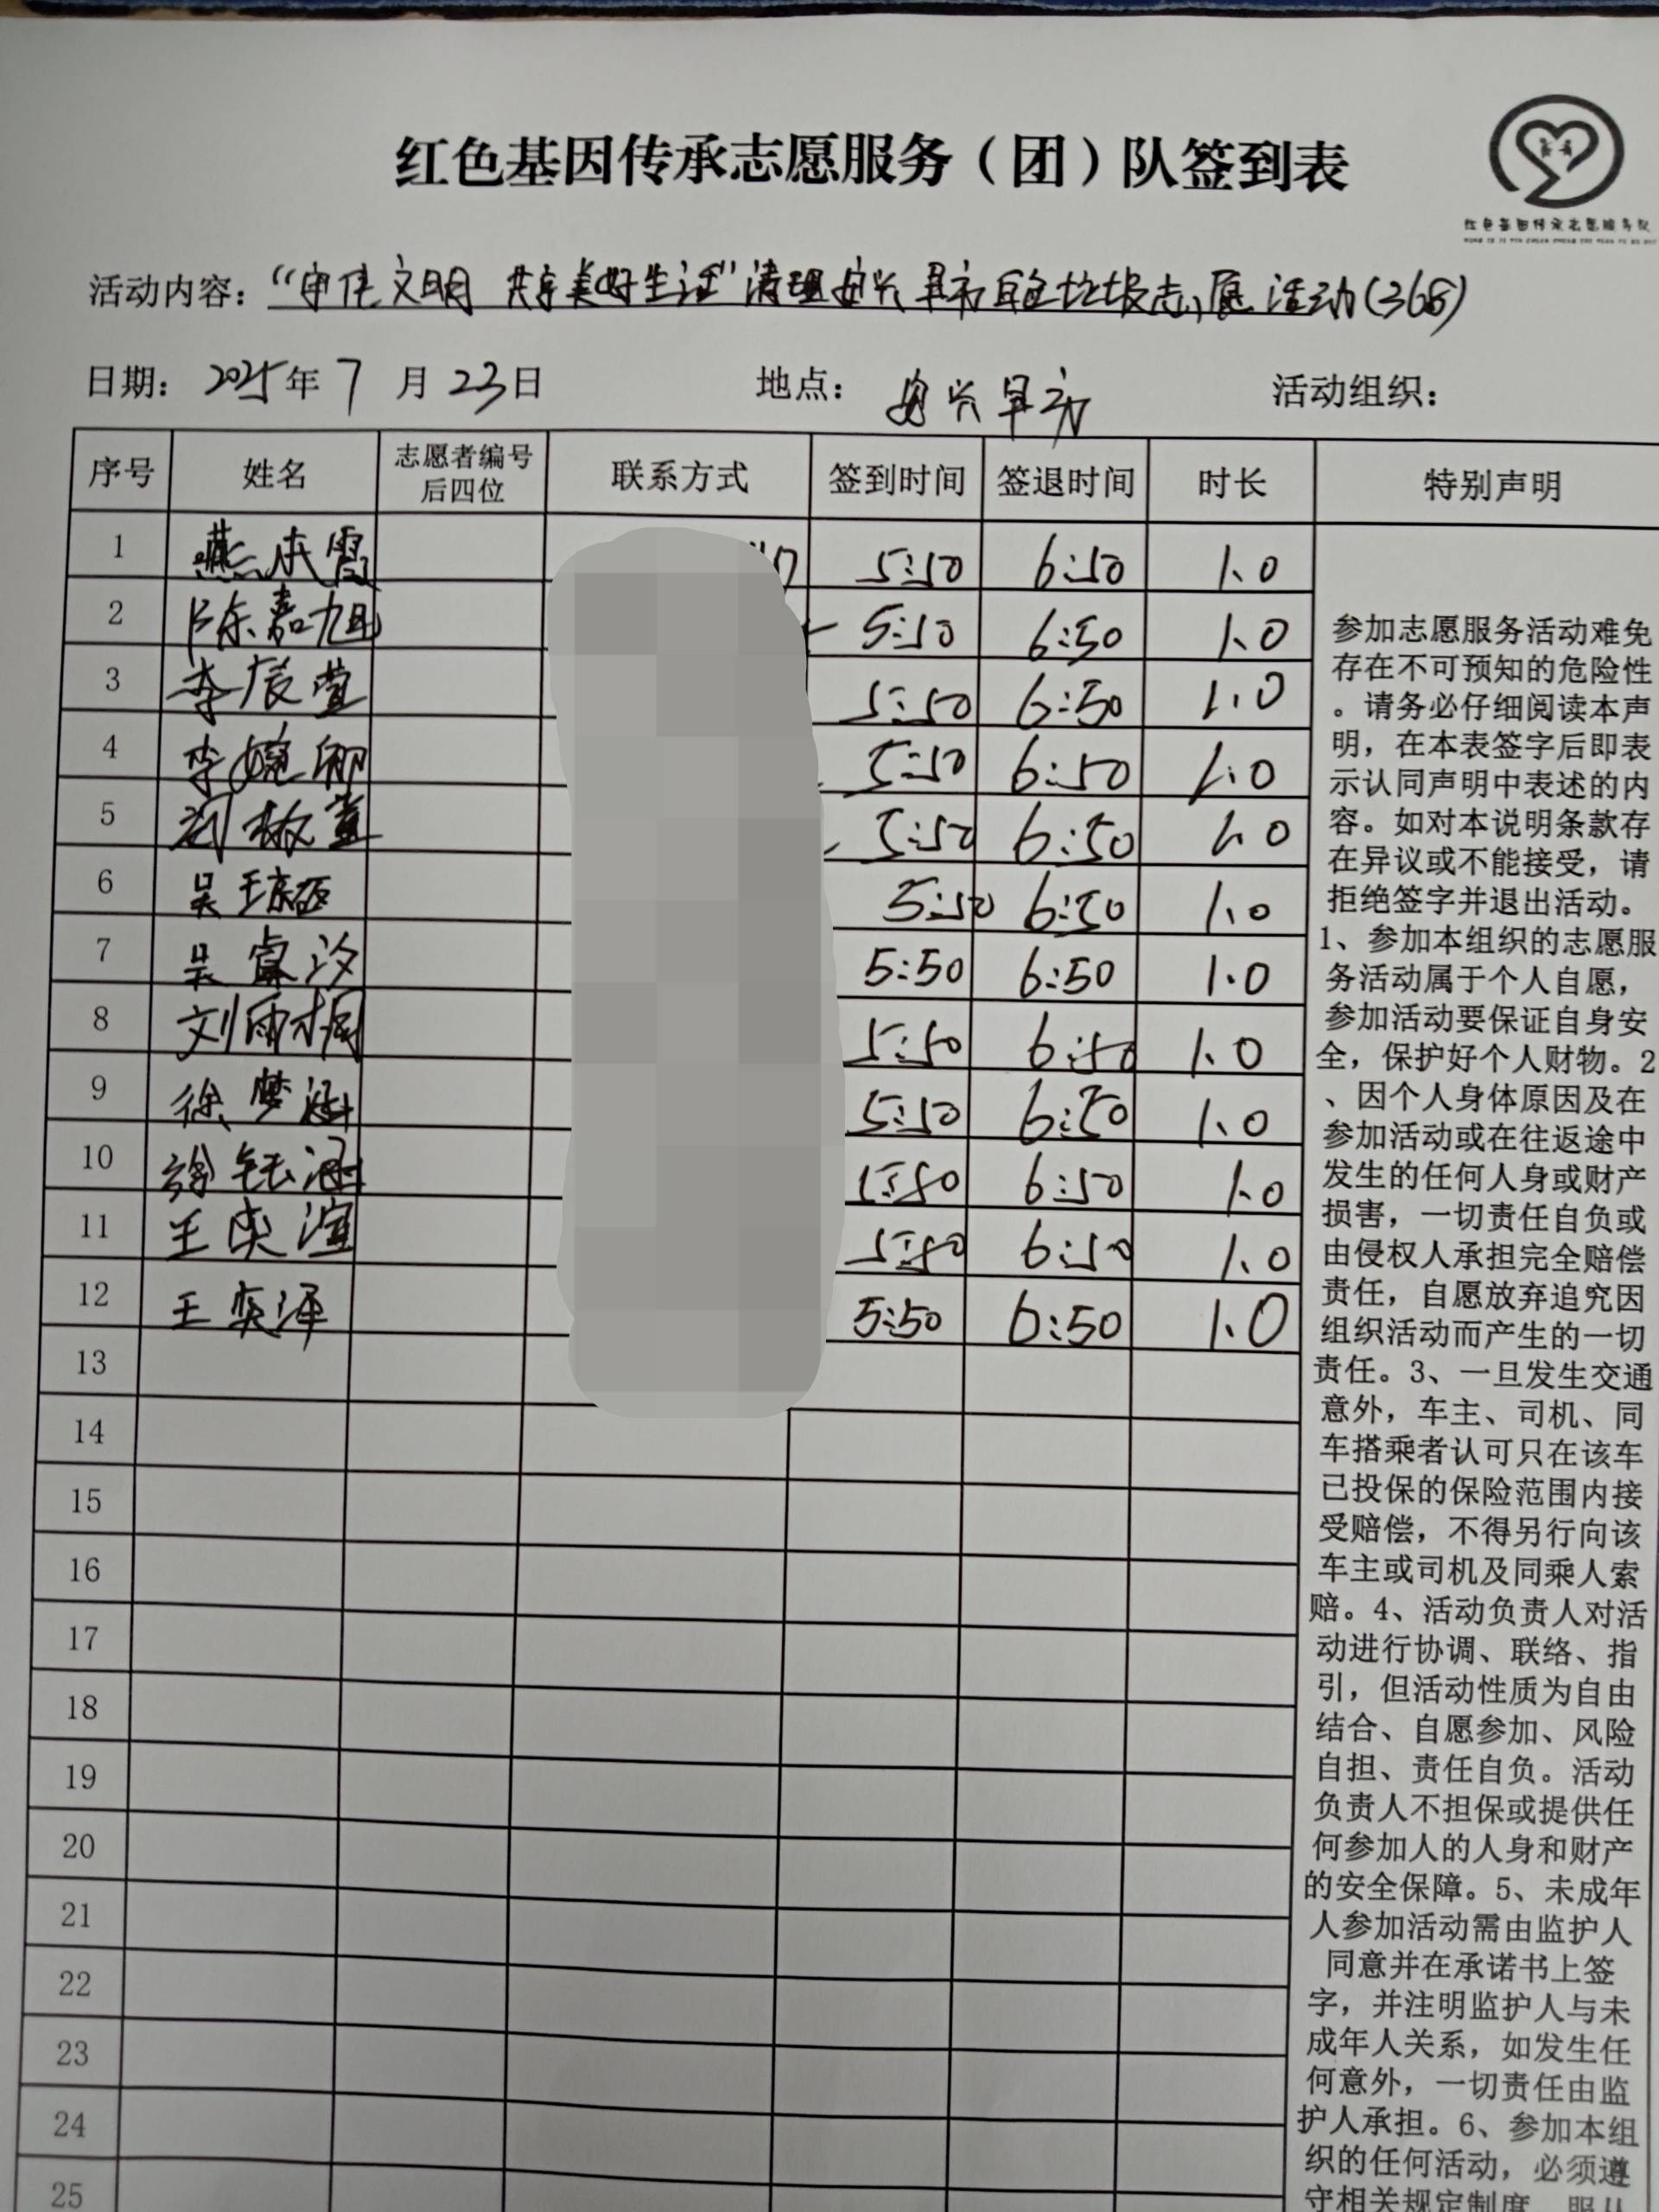 红色基因传承志愿服务（团）队签到表
红色基因传承志愿服务队
活动内容：“守住文明 共享美好生活”清理安兴早市白色垃圾志愿活动(368)
日期：2025年7月23日 地点：安兴早市 活动组织：
序号 姓名 志愿者编号后四位 联系方式 签到时间 签退时间 时长 特别声明
1 燕本霞 5:50 6:50 1.0
2 陈嘉旭 5:50 6:50 1.0
3 李宸萱 5:50 6:50 1.0
4 李婉卿 5:50 6:50 1.0
5 刘 5:50 6:50 1.0
6 吴 5:50 6:50 1.0
7 吴睿汐 5:50 6:50 1.0
8 刘雨桐 5:50 6:50 1.0
9 徐梦涵 5:50 6:50 1.0
10 徐钰涵 5:50 6:50 1.0
11 王奕渲 5:50 6:50 1.0
12 王奕泽 5:50 6:50 1.0
13
14
15
16
17
18
19
20
21
22
23
24
25
参加志愿服务活动难免
存在不可预知的危险性
。请务必仔细阅读本声
明，在本表签字后即表
示认同声明中表述的内
容。如对本说明条款存
在异议或不能接受，请
拒绝签字并退出活动。
1、参加本组织的志愿服
务活动属于个人自愿，
参加活动要保证自身安
全，保护好个人财物。2
、因个人身体原因及在
参加活动或在往返途中
发生的任何人身或财产
损害，一切责任自负或
由侵权人承担完全赔偿
责任，自愿放弃追究因
组织活动而产生的一切
责任。3、一旦发生交通
意外，车主、司机、同
车搭乘者认可只在该车
已投保的保险范围内接
受赔偿，不得另行向该
车主或司机及同乘人索
赔。4、活动负责人对活
动进行协调、联络、指
引，但活动性质为自由
结合、自愿参加、风险
自担、责任自负。活动
负责人不担保或提供任
何参加人的人身和财产
的安全保障。5、未成年
人参加活动需由监护人
同意并在承诺书上签
字，并注明监护人与未
成年人关系，如发生任
何意外，一切责任由监
护人承担。6、参加本组
织的任何活动，必须遵
守相关规定制度，服从